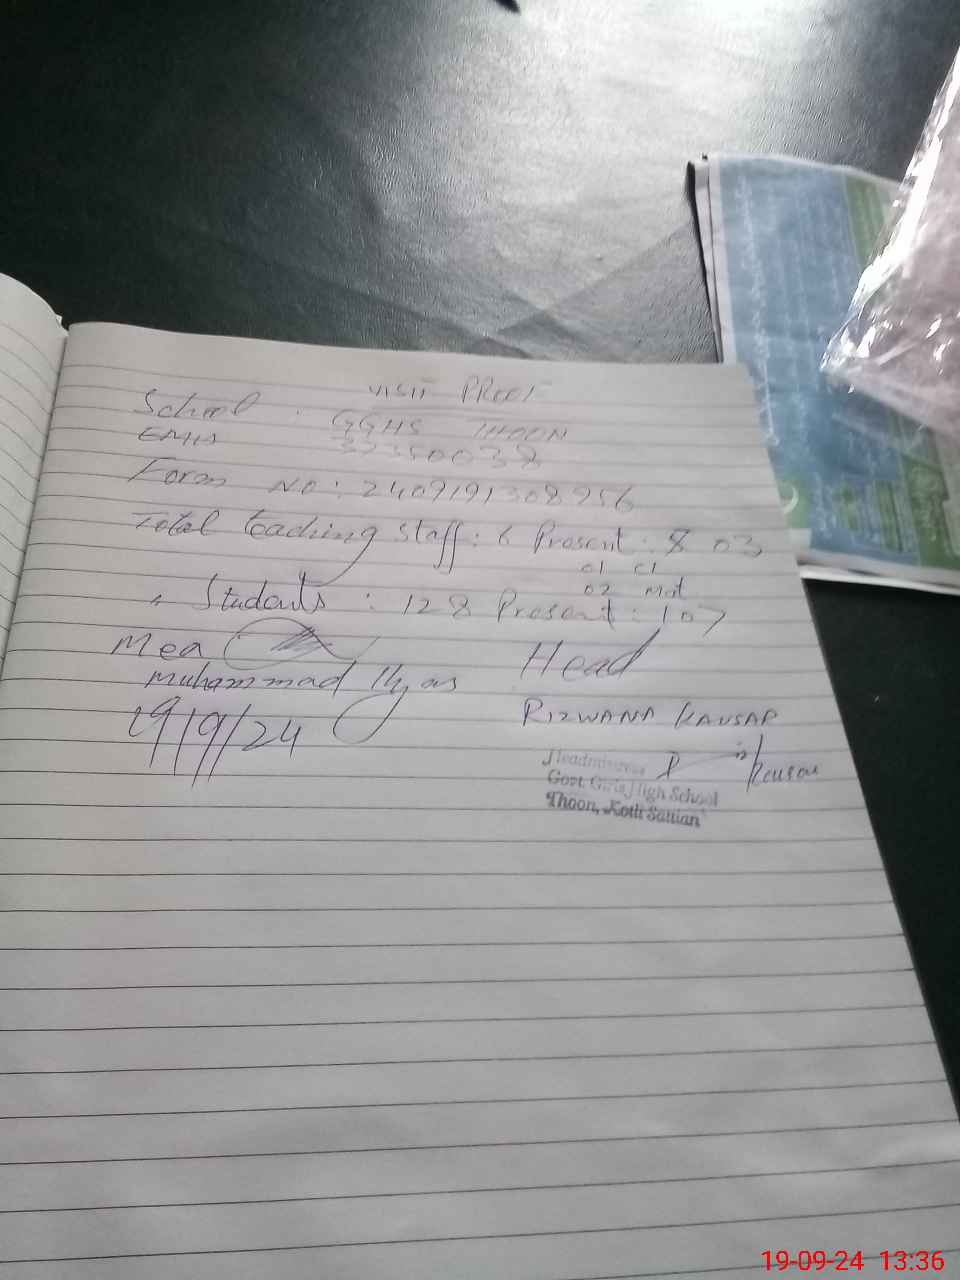 VISIT PROOF
School : GGHS THOON
EMIS 37350038
Form No: 2409191308956
Total teaching staff: 6 Present: 8 03
01 Cl
02 Mat
" Students : 128 Present: 107
Mea
Head
Muhammad Ilyas
RIZWANA KAUSAR
19/9/24
Kausar
Headmistress
Govt. Girls High School
Thoon, Kotli Sattian
19-09-24 13:36